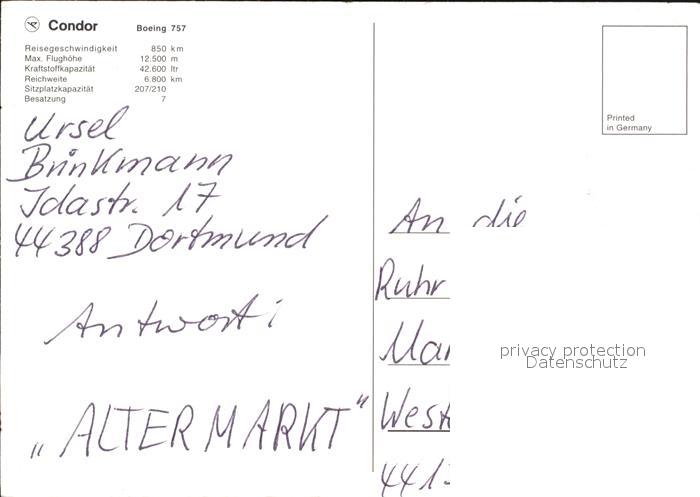 Condor Boeing 757
Reisegeschwindigkeit 850 km
Max. Flughöhe 12.500 m
Kraftstoffkapazität 42.600 ltr
Reichweite 6.800 km
Sitzplatzkapazität 207/210
Besatzung 7
Ursel
Brinkmann
Idastr. 17
44388 Dortmund
Antwort:
„ALTER MARKT"
Printed
in Germany
An die
Ruhr
Mar
West
441
privacy protection
Datenschutz